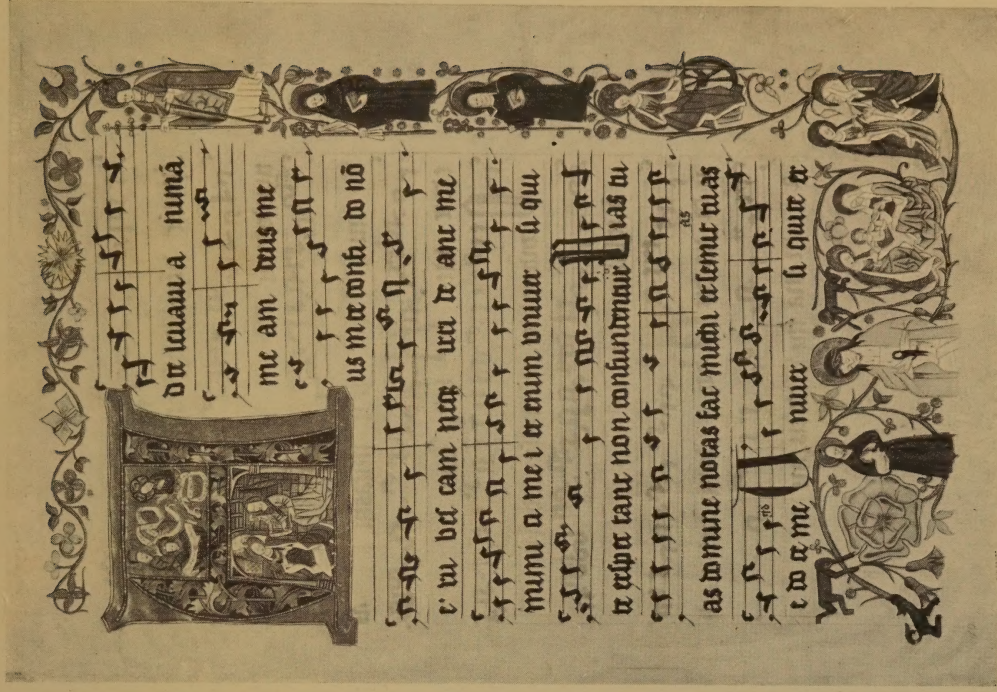 A D te leuaui a nimā
me am deus me
us in te confi do nō
e ru bes cam neqꝫ irri de ant me
inimi ci me i et enim vniuer si qui
te exspec tant non confundentur Vias tu
as domine notas fac michi et semit as tuas
e do ce me V niuer si qui te